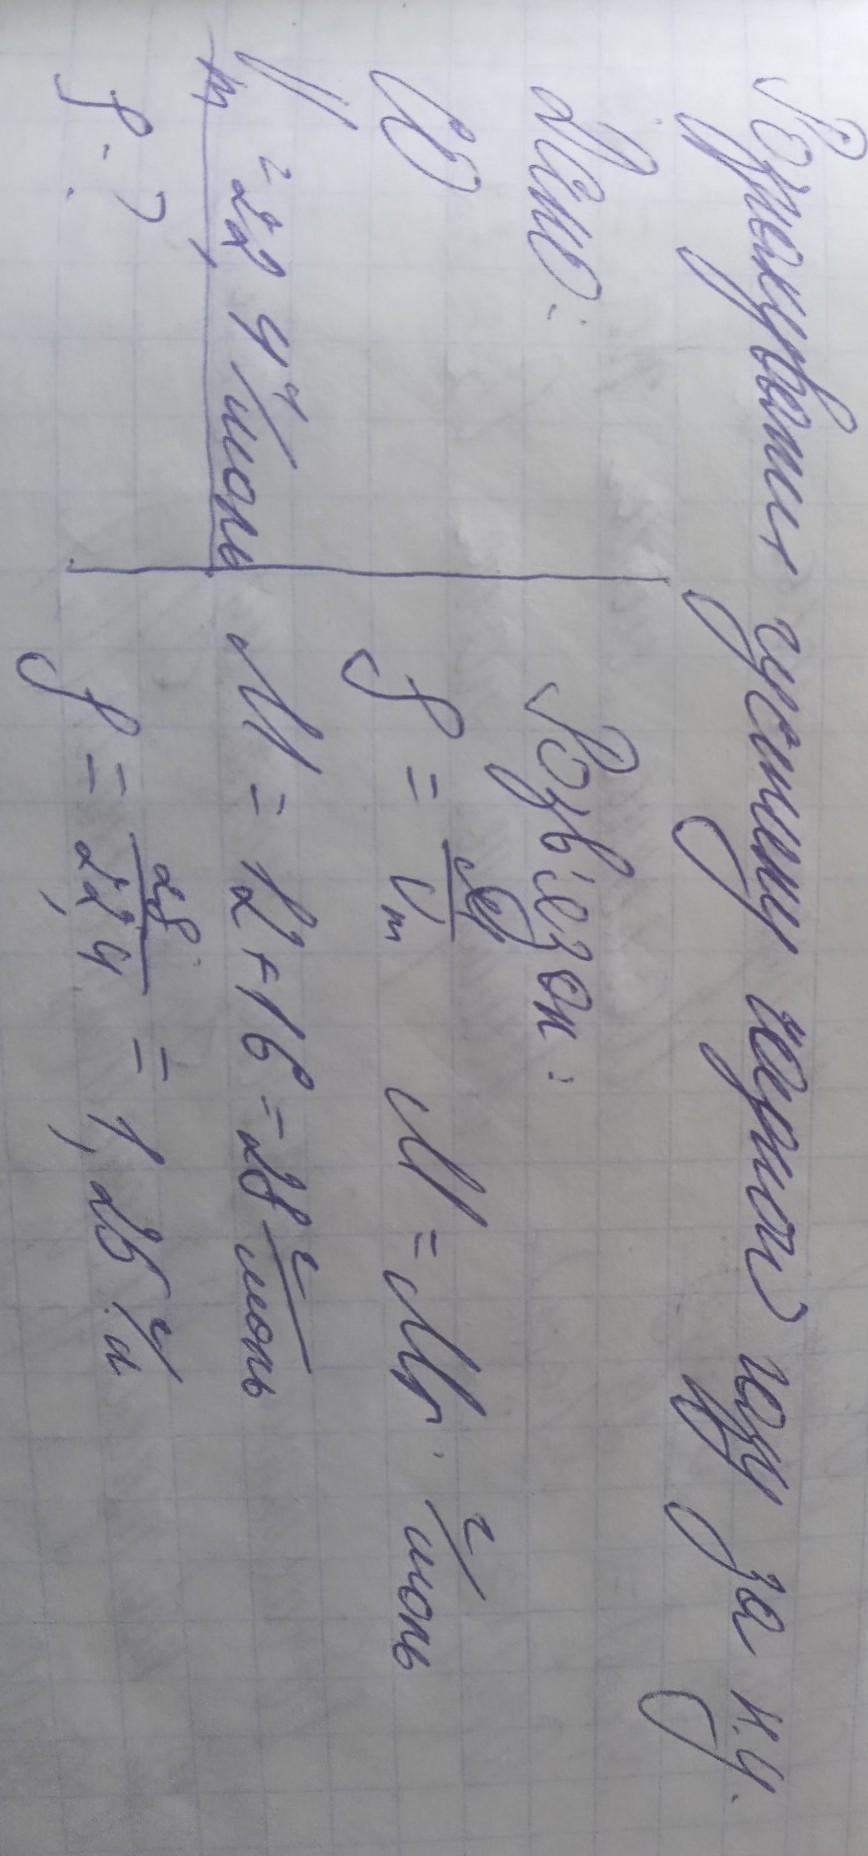 Розрахувати густину чадного газу за н.у.
Дано:
CO
Vm = 22,4 л/моль
ρ - ?
Розв'язок:
ρ = M/Vm M = Mr · г/моль
M = 12+16 = 28 г/моль
ρ = 28/22,4 = 1,25 г/л